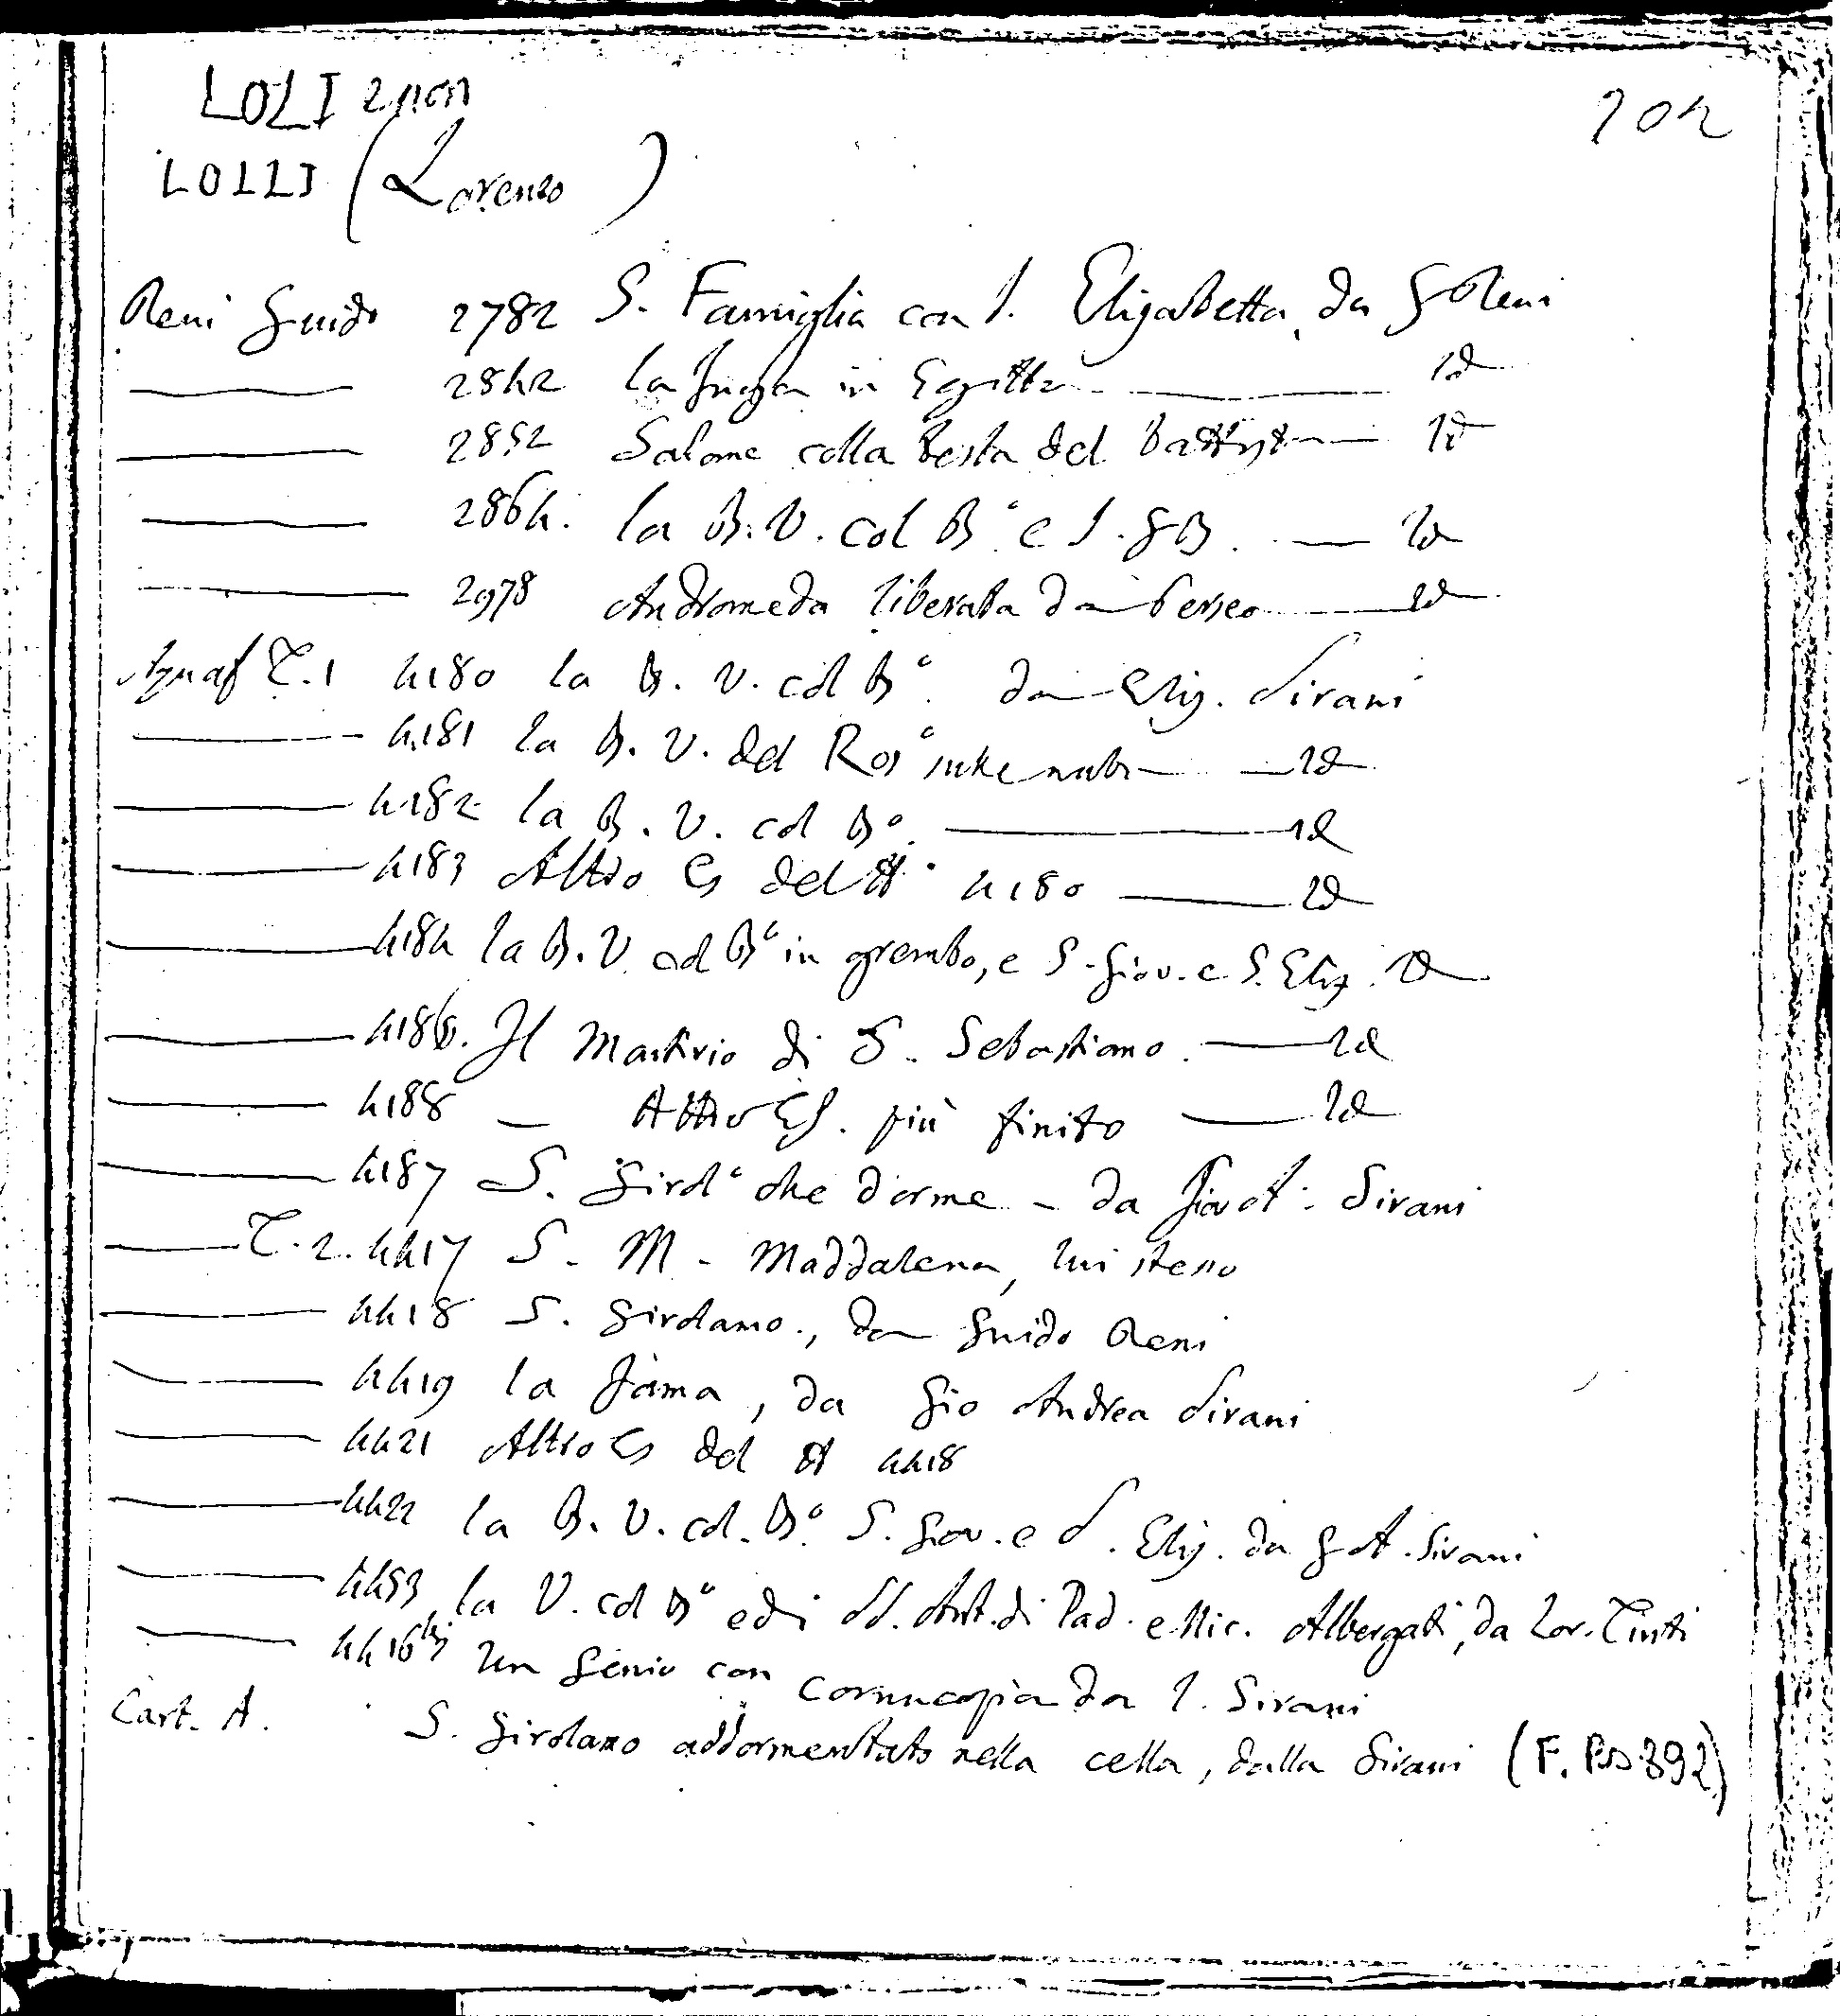 LOLI 204
LOLLI (Lorenzo)
Reni Guido 2782 S. Famiglia con S. Elisabetta, da G Reni
2842 la fuga in Egitto Id
2852 Salome colla testa del Battista Id
2864. la B. V. col Bº e S. GB. Id
2978 Andromeda liberata da Perseo Id
Acquaf T. 1 4180 la B. V. col Bº. da Elis. Sirani
4181 la B. V. del Rosº sulle nubi Id
4182 la B. V. col Bº. Id
4183 Altro Es del # 4180 Id
4184 la B. V. col Bº in grembo, e S. Giov. e S. Elis. Id
4186. Il Martirio di S. Sebastiano. Id
4188 Altro Es. più finito Id
4187 S. Girolº che dorme - da Gio A. Sirani
T. 2. 4417 S. M. Maddalena, lui stesso
4418 S. Girolamo, da Guido Reni
4419 la Fama, da Gio Andrea Sirani
4421 Altro Es del # 4418
4422 la B. V. col Bº S. Giov. e S. Elis. da G A. Sirani
4453 la V. col Bº ed i SS. Ant. di Pad. e Nic. Albergati, da Lor. Tinti
4416bis Un Genio con cornucopia da l. Sirani
Cart. A. S. Girolamo addormentato nella cella, dalla Sirani (F. 392)